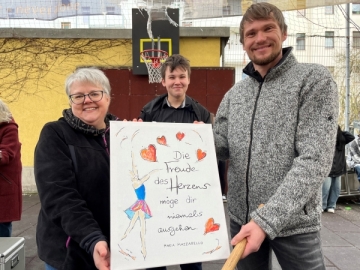 Die
Freude
des
Herzens
möge dir
niemals
ausgehen